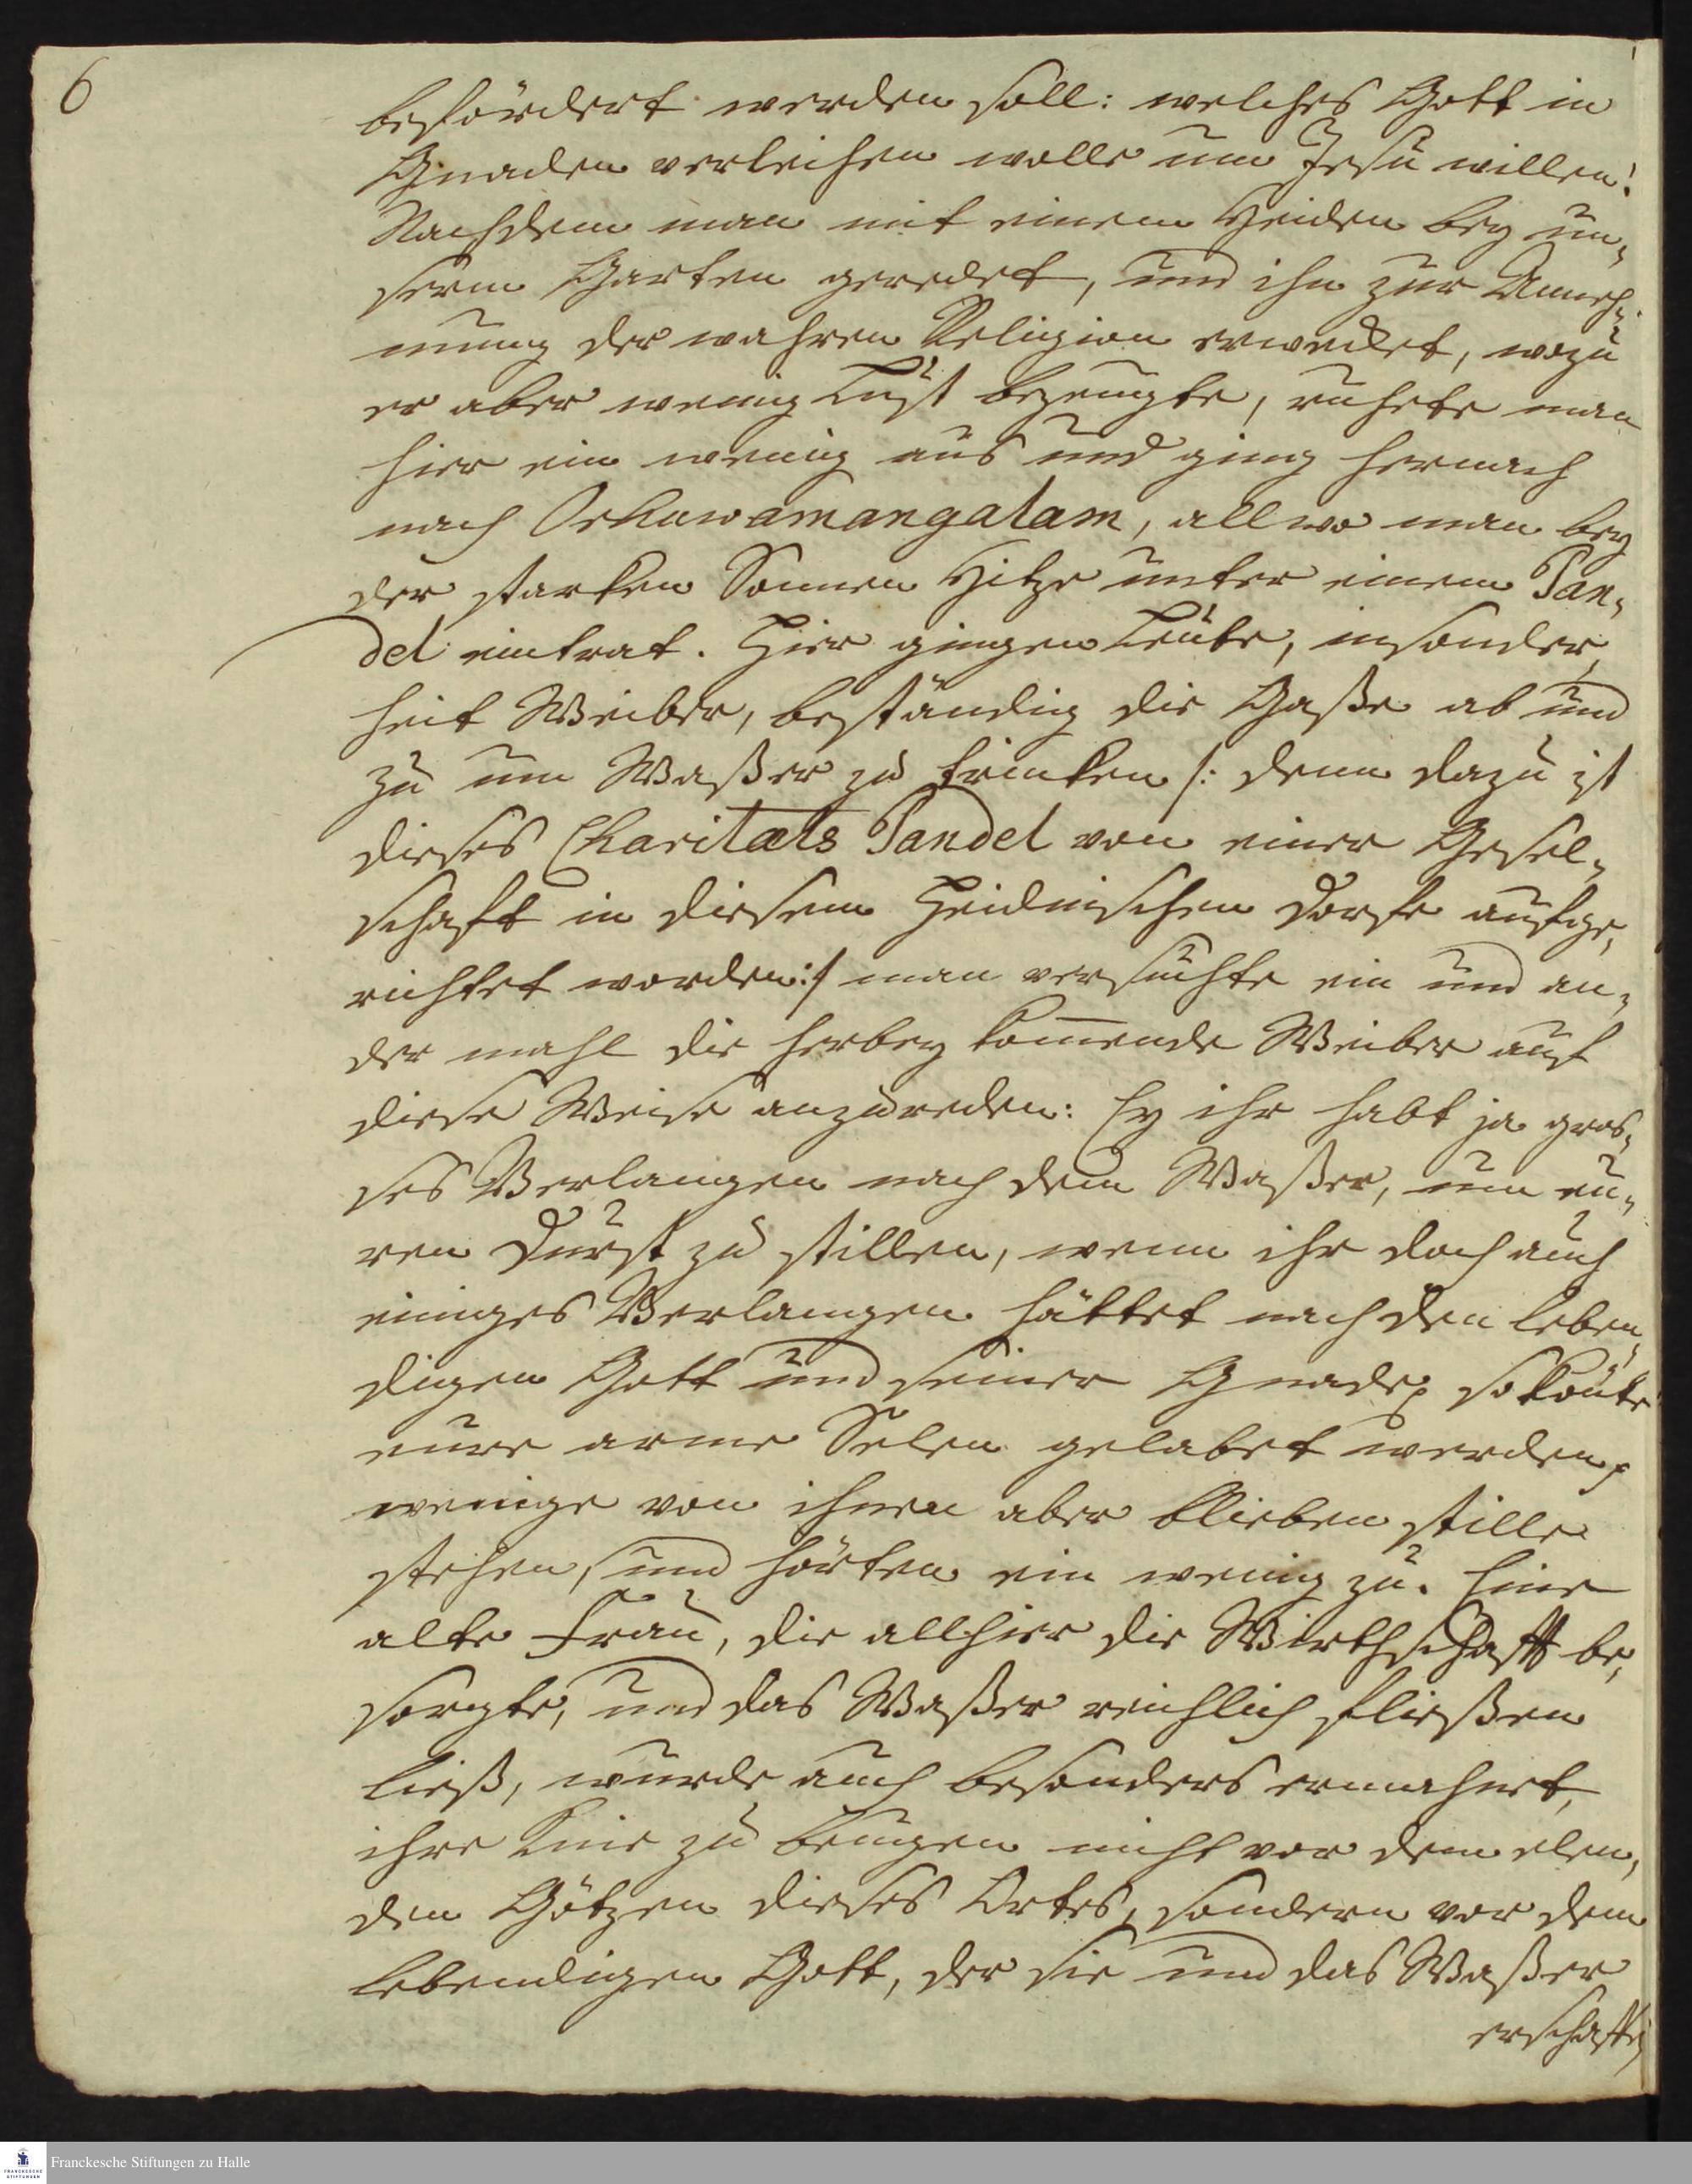 6
befördert werden soll: welches Gott in
Gnaden verleihen wolle um Jesu willen!
Nachdem man mit einem Heiden bey un-
serm Garten geredet, und ihn zur Anneh-
mung der wahren Religion erwecket, wozu
er aber wenig Lust bezeugte, ruhete man
hier ein wenig aus und ging hernach
nach Orkuwamangalam, allwo man bey
der starken Sonnen Hitze unter einem Pan-
del eintrat. Hier gingen Leute, insonder-
heit Weiber, beständig die Gaße ab und
zu um Waßer zu trinken /: denn dazu ist
dieses Charitæts Pandel von einer Gesel-
schaft in diesem Heidnischen Dorfe aufge-
richtet worden :/ man versuchte ein und an-
der mahl die herbey kom̄ende Weiber auf
diese Weise anzureden: Ey ihr habt ja gros-
ses Verlangen nach dem Waßer, um eu-
ren Durst zu stillen, wenn ihr doch auch
einiges Verlangen hättet nach den leben-
digen Gott und seiner Gnade, so könte
eure arme Selen gelabet werden,
wenige von ihnen aber blieben stille
stehen, und hörten ein wenig zu. Eine
alte Frau, die allhier die Wirthschafft be-
sorgte, und das Waßer reichlich fließen
ließ, wurde auch besonders ermahnet,
ihre Knie zu beugen nicht vor dem elen-
den Götzen dieses Ortes, sondern vor dem
lebendigen Gott, der sie und das Waßer
erschaffen
Franckesche Stiftungen zu Halle
FRANCKESCHE
STIFTUNGEN